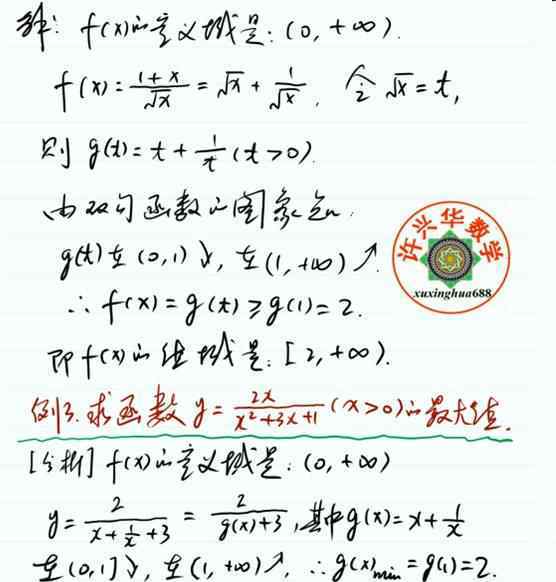 解: f(x)的定义域是: (0, +∞).
f(x) = \frac{1+x}{\sqrt{x}} = \sqrt{x} + \frac{1}{\sqrt{x}}. 令 \sqrt{x} = t,
则 g(t) = t + \frac{1}{t} (t>0).
由双勾函数的图象知:
g(t)在(0,1)↘, 在(1,+∞)↗.
∴ f(x) = g(t) ≥ g(1) = 2.
即f(x)的值域是: [2, +∞).
许兴华数学
xuxinghua688
例3. 求函数 y = \frac{2x}{x^2+3x+1} (x>0)的最大值.
[分析] f(x)的定义域是: (0, +∞)
y = \frac{2}{x+\frac{1}{x}+3} = \frac{2}{g(x)+3}, 其中g(x) = x + \frac{1}{x}
在(0,1]↘, 在(1,+∞)↗, ∴ g(x)_{min} = g(1) = 2.